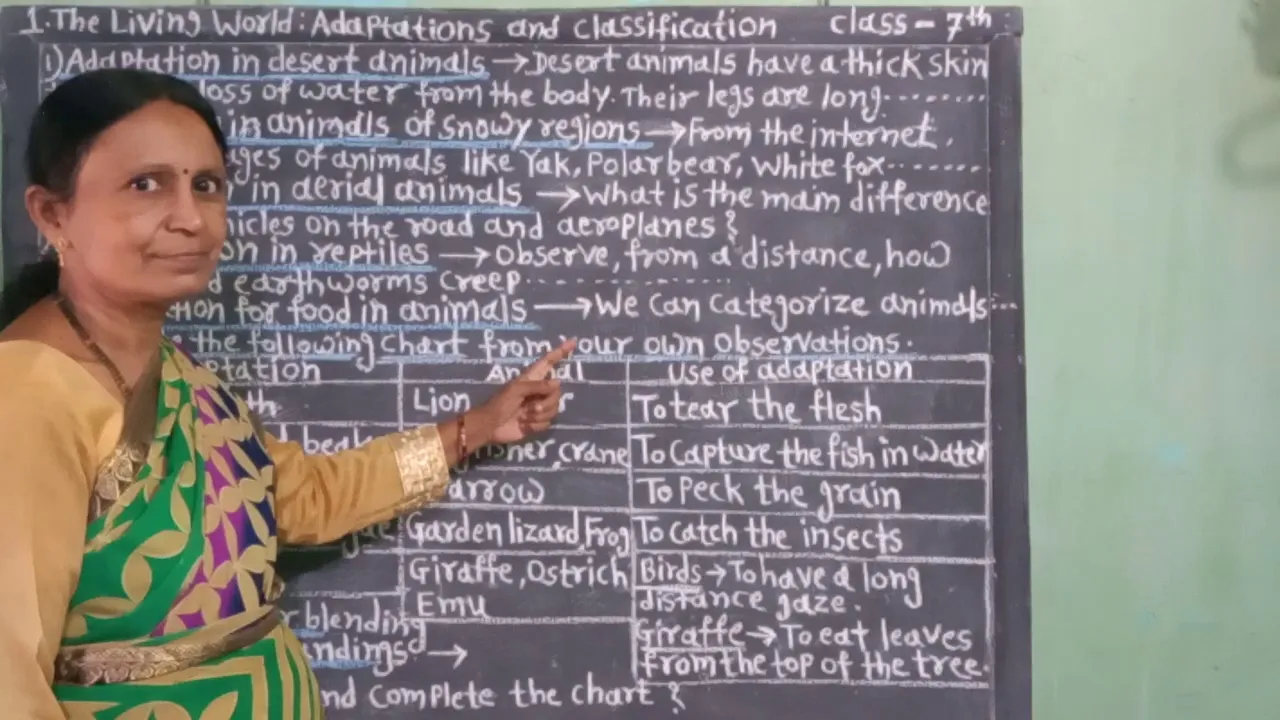 1. The Living World: Adaptations and classification class - 7th
i) Adaptation in desert animals → Desert animals have a thick skin
loss of water from the body. Their legs are long........
in animals of snowy regions → From the internet,
of animals like Yak, Polar bear, White fox......
in aerial animals → What is the main difference
on the road and aeroplanes?
in reptiles → Observe, from a distance, how
earthworms creep..............
for food in animals → We can categorize animals...
the following chart from your own observations.
Animal Use of adaptation
Lion To tear the flesh
crane To capture the fish in water
To Peck the grain
Garden lizard, Frog To catch the insects
Giraffe, Ostrich Birds → To have a long
Emu distance gaze.
blending Giraffe → To eat leaves
→ from the top of the tree.
complete the chart?